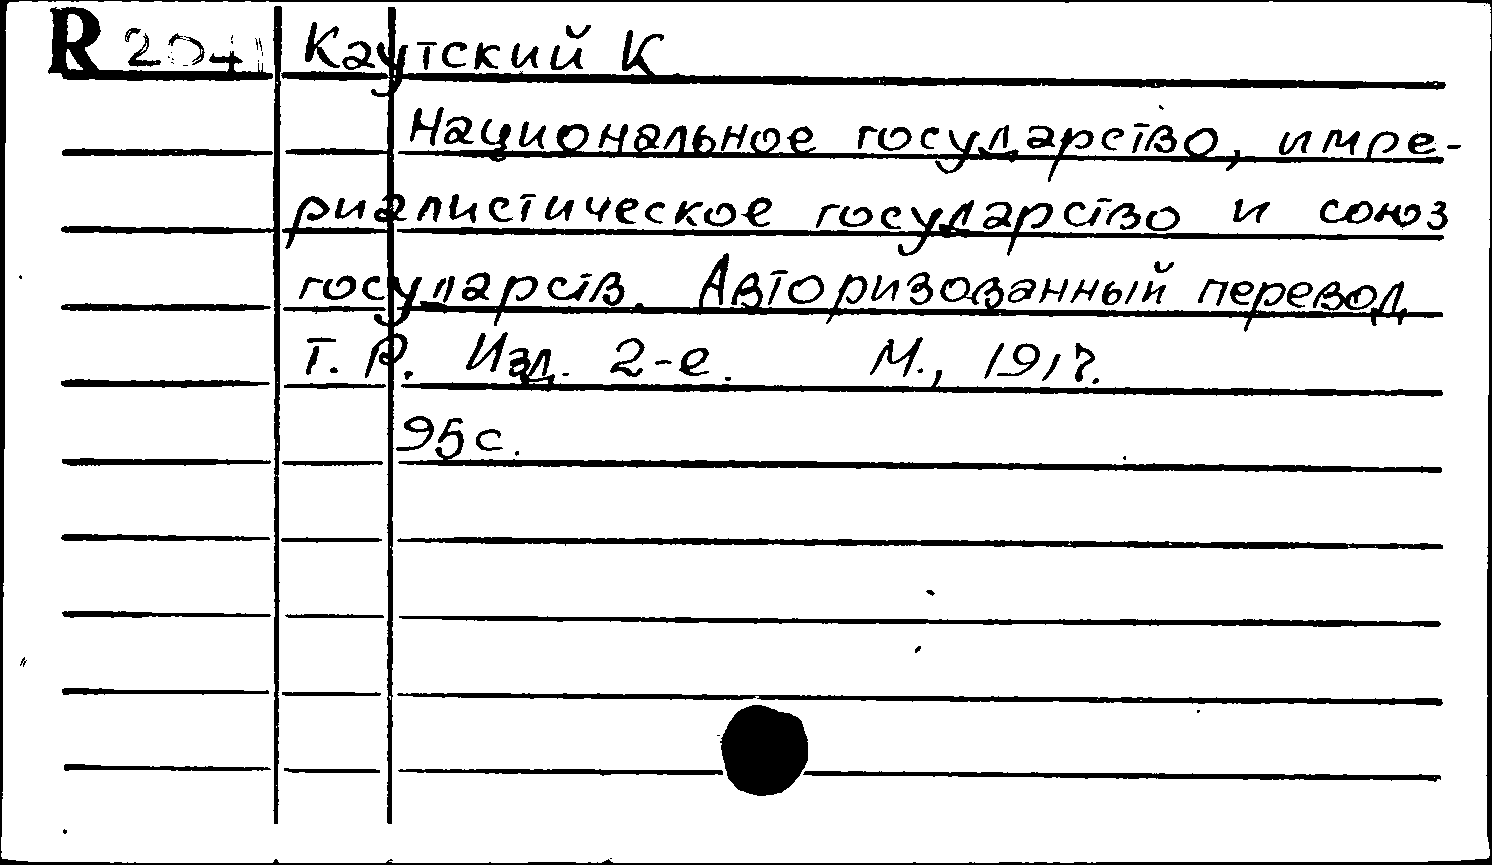 R 2041 Каутский К
Национальное государство, импе-
риалистическое государство и союз
государств. Авторизованный перевод
Т. Р. Изд. 2-е. М., 1917.
95 с.